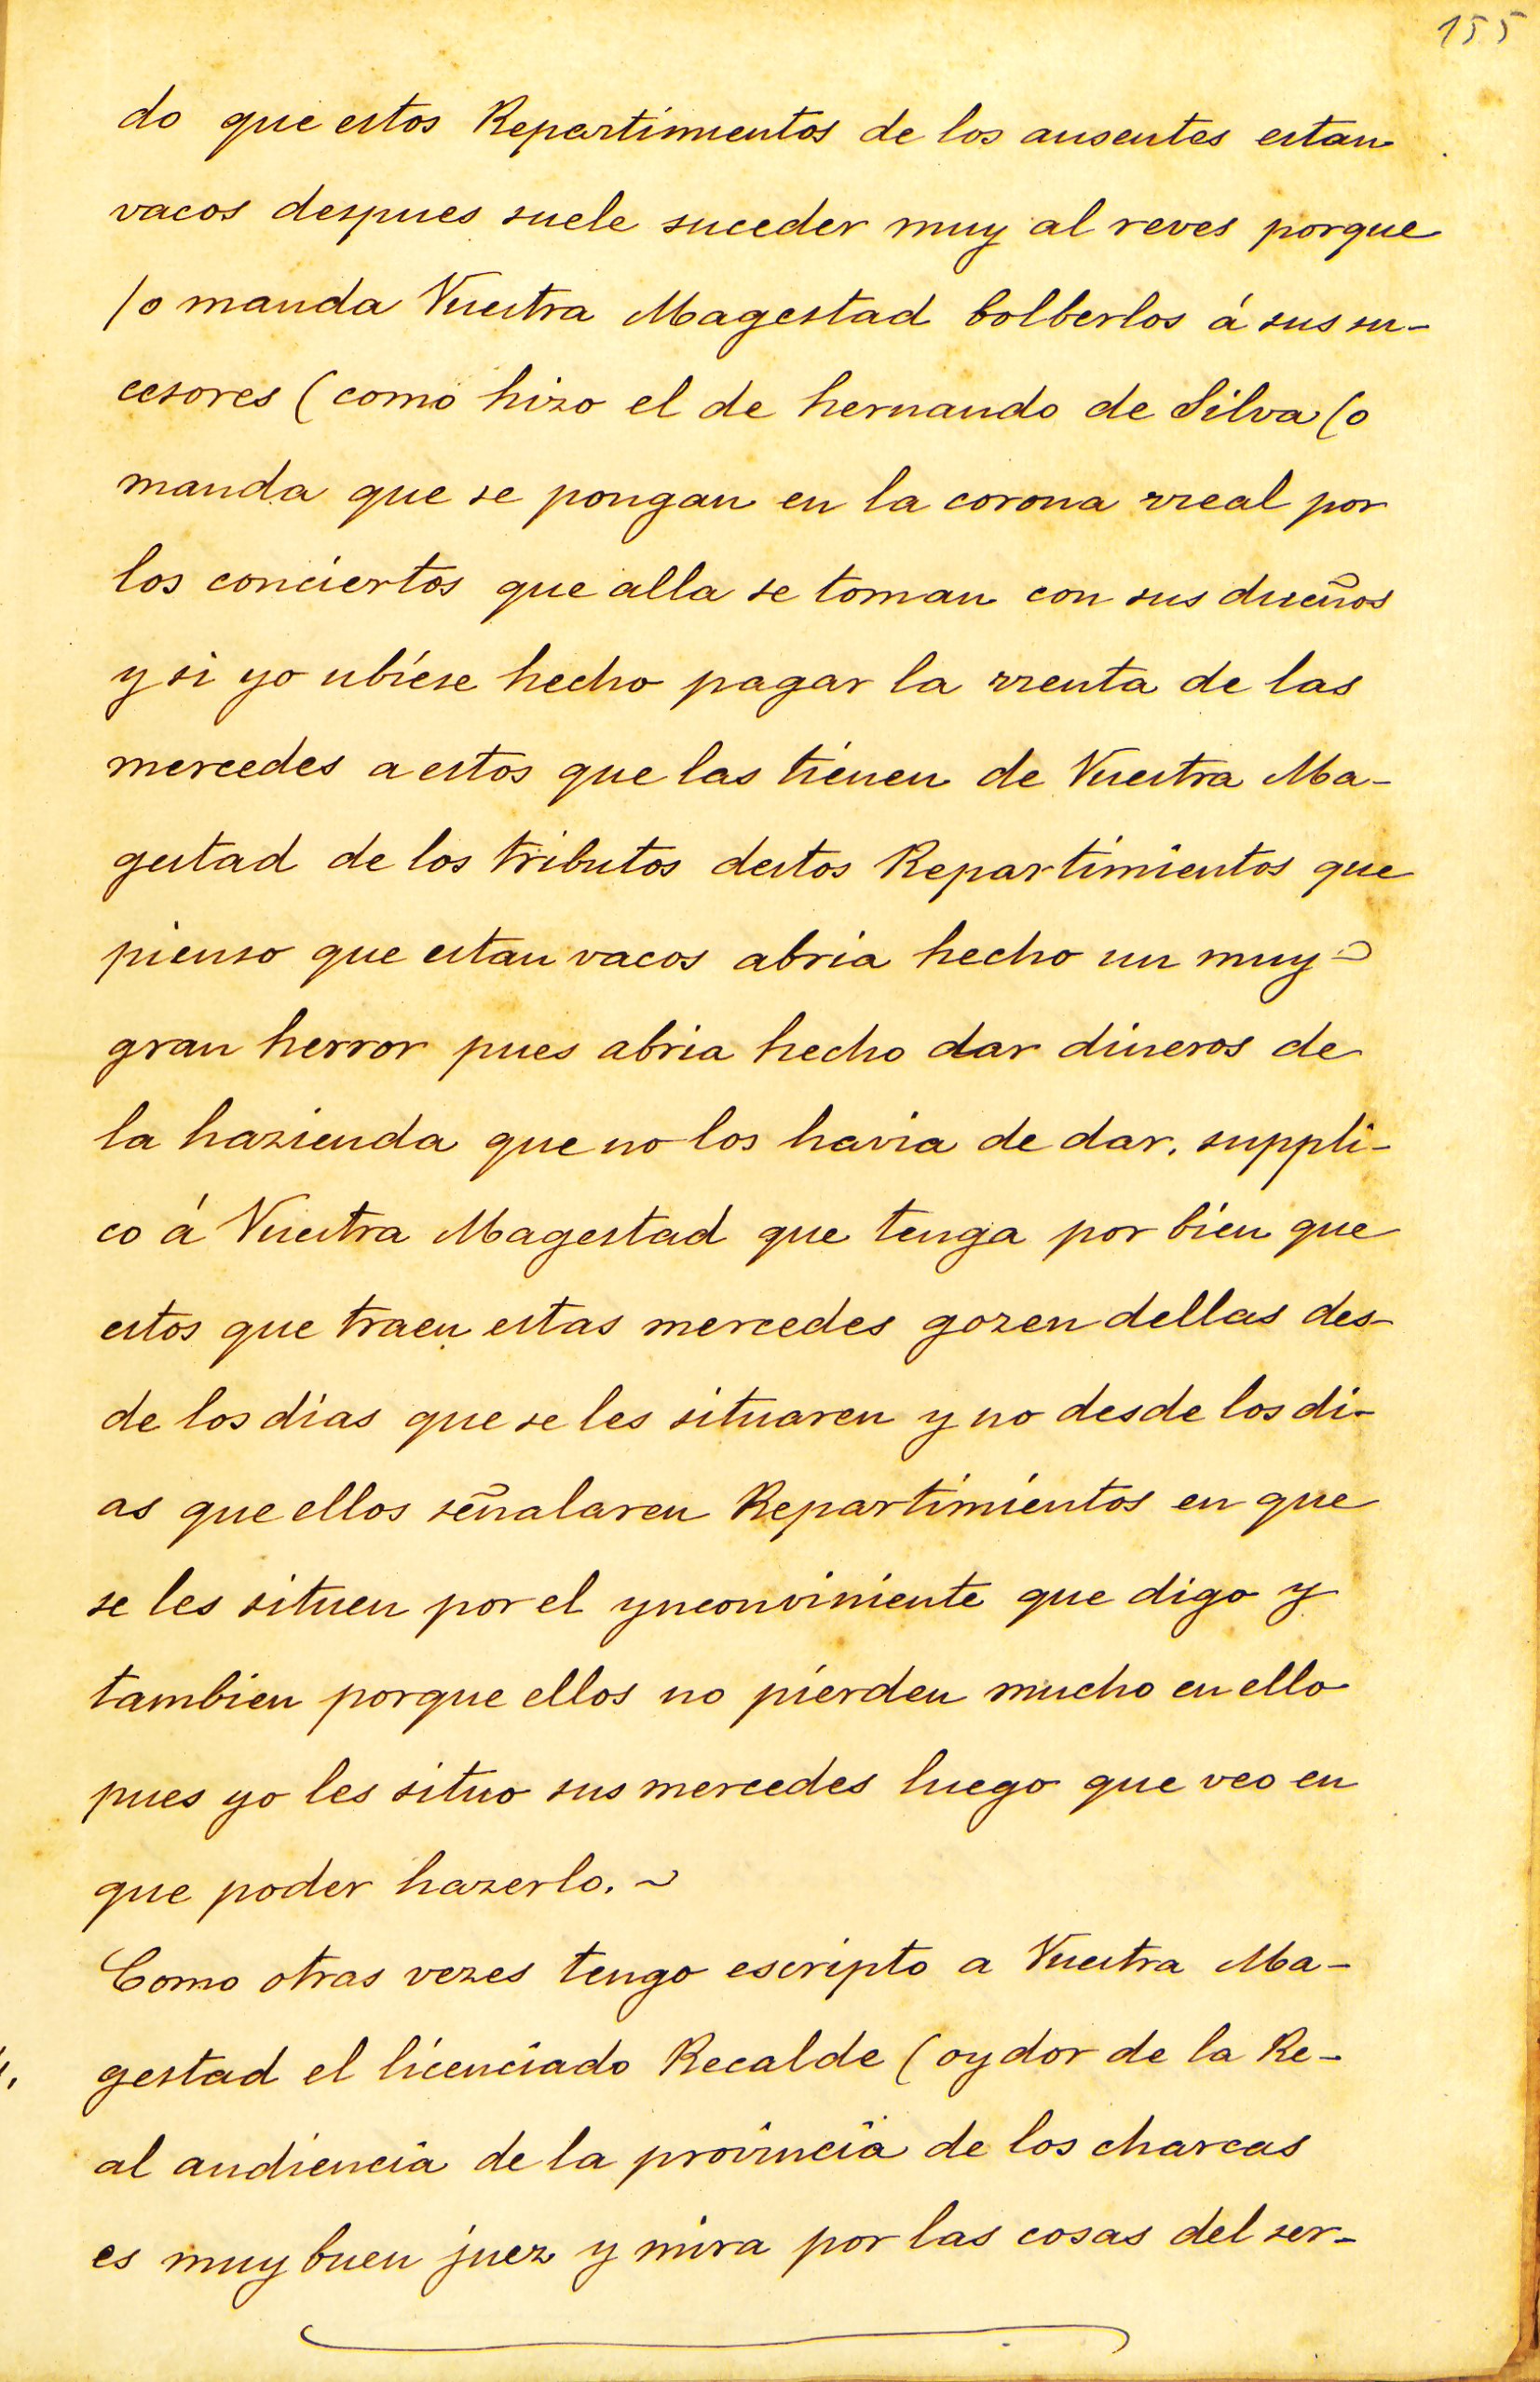 155
do que estos Repartimientos de los ausentes estan
vacos despues suele suceder muy al reves porque
/o manda Vuestra Magestad bolberlos á sus su-
cesores (como hizo el de hernando de Silva (o
manda que se pongan en la corona rreal por
los conciertos que alla se toman con sus dueños
y si yo ubiese hecho pagar la rrenta de las
mercedes a estos que las tienen de Vuestra Ma-
gestad de los tributos destos Repartimientos que
pienso que estan vacos abria hecho un muy
gran herror pues abria hecho dar dineros de
la hazienda que no los havia de dar. suppli-
co á Vuestra Magestad que tenga por bien que
estos que traen estas mercedes gozen dellas des-
de los dias que se les situaren y no desde los di-
as que ellos señalaren Repartimientos en que
se les situen por el ynconviniente que digo y
tambien porque ellos no pierden mucho en ello
pues yo les situo sus mercedes luego que veo en
que poder hazerlo. ~
Como otras vezes tengo escripto a Vuestra Ma-
gestad el licenciado Recalde (oydor de la Re-
al audiencia de la provincia de los charcas
es muy buen juez y mira por las cosas del ser-